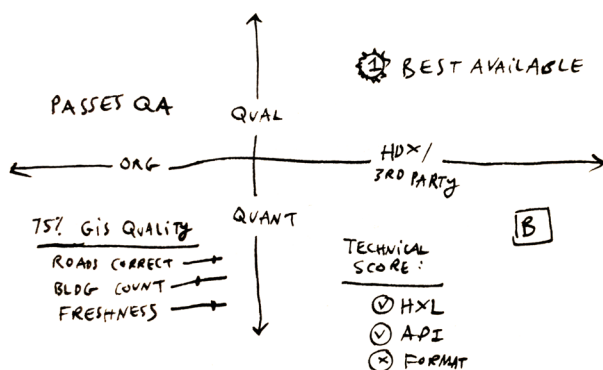 ① BEST AVAILABLE
PASSES QA
QUAL
ORG
HDX/
3RD PARTY
QUANT
75% GIS QUALITY
ROADS CORRECT
BLDG COUNT
FRESHNESS
B
TECHNICAL
SCORE:
HXL
API
FORMAT